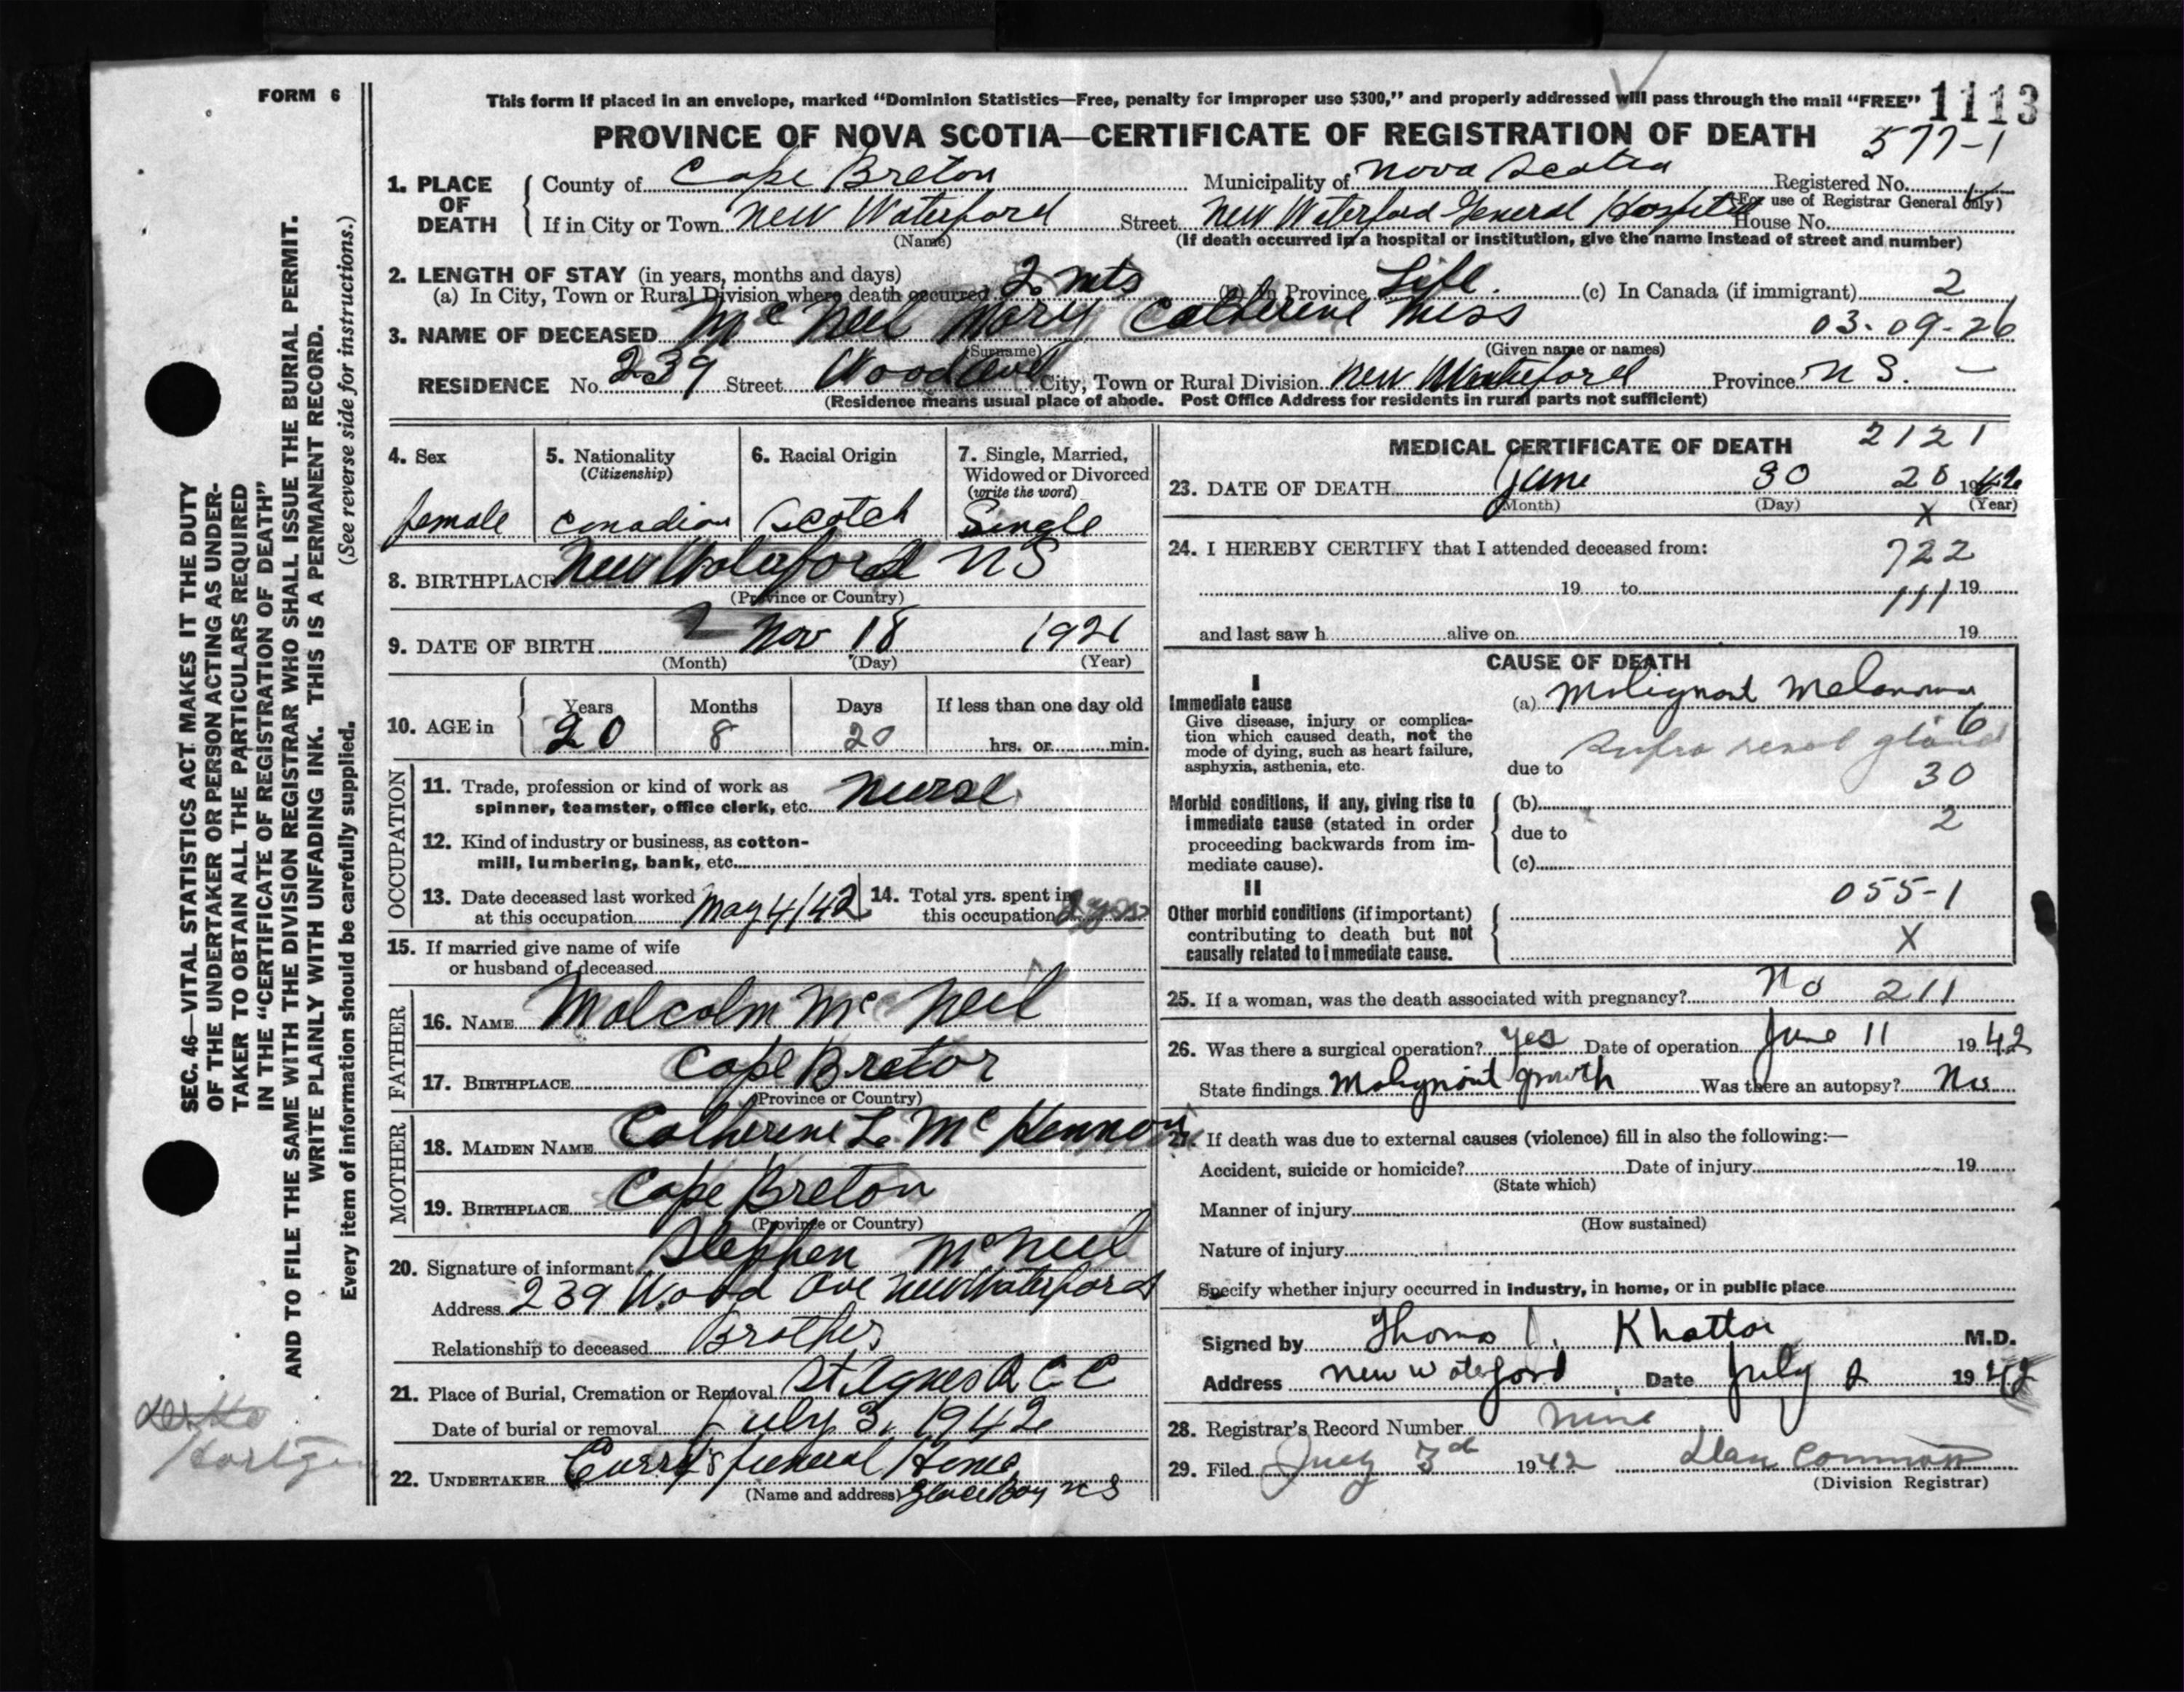 FORM 6
This form if placed in an envelope, marked "Dominion Statistics—Free, penalty for improper use $300," and properly addressed will pass through the mail "FREE" 1113
PROVINCE OF NOVA SCOTIA—CERTIFICATE OF REGISTRATION OF DEATH
577-1
1. PLACE OF DEATH
County of Cape Breton Municipality of Nova Scotia Registered No.
(For use of Registrar General only)
If in City or Town New Waterford Street New Waterford General Hospital House No.
(Name) (If death occurred in a hospital or institution, give the name instead of street and number)
2. LENGTH OF STAY (in years, months and days)
(a) In City, Town or Rural Division where death occurred 2 mts (b) In Province Life. (c) In Canada (if immigrant) 2
3. NAME OF DECEASED Mc Neil Mary Catherine Miss 03-09-26
(Surname) (Given name or names)
RESIDENCE No. 239 Street Wood Ave City, Town or Rural Division New Waterford Province N S. —
(Residence means usual place of abode. Post Office Address for residents in rural parts not sufficient)
4. Sex
female
5. Nationality
(Citizenship)
Canadian
6. Racial Origin
Scotch
7. Single, Married, Widowed or Divorced
(write the word)
Single
8. BIRTHPLACE New Waterford N S
(Province or Country)
9. DATE OF BIRTH Nov 18 1921
(Month) (Day) (Year)
10. AGE in
Years Months Days If less than one day old
20 8 20 hrs. or min.
OCCUPATION
11. Trade, profession or kind of work as
spinner, teamster, office clerk, etc. Nurse
12. Kind of industry or business, as cotton-
mill, lumbering, bank, etc.
13. Date deceased last worked
at this occupation May 4/42
14. Total yrs. spent in
this occupation
15. If married give name of wife
or husband of deceased
FATHER
16. NAME Malcolm Mc Neil
17. BIRTHPLACE Cape Breton
(Province or Country)
MOTHER
18. MAIDEN NAME Catherine L. Mc Kennon
19. BIRTHPLACE Cape Breton
(Province or Country)
20. Signature of informant Stephen McNeil
Address 239 Wood Ave New Waterford
Relationship to deceased Brother
21. Place of Burial, Cremation or Removal St. Agnes R C C
Date of burial or removal July 3, 1942
22. UNDERTAKER Curry's Funeral Home
(Name and address) Glace Bay N S
MEDICAL CERTIFICATE OF DEATH 2121
23. DATE OF DEATH June 30 20 1942
(Month) (Day) X (Year)
24. I HEREBY CERTIFY that I attended deceased from:
722
19 to 19
111
and last saw h alive on 19
CAUSE OF DEATH
I
Immediate cause
Give disease, injury or complica-
tion which caused death, not the
mode of dying, such as heart failure,
asphyxia, asthenia, etc.
(a) Malignant Melanoma
6
Supra renal gland
due to
30
Morbid conditions, if any, giving rise to
immediate cause (stated in order
proceeding backwards from im-
mediate cause).
(b)
2
due to
(c)
II
Other morbid conditions (if important)
contributing to death but not
causally related to immediate cause.
055-1
X
25. If a woman, was the death associated with pregnancy? No 211
26. Was there a surgical operation? yes Date of operation June 11 1942
State findings Malignant growth Was there an autopsy? No
27. If death was due to external causes (violence) fill in also the following:—
Accident, suicide or homicide? Date of injury 19
(State which)
Manner of injury
(How sustained)
Nature of injury
Specify whether injury occurred in industry, in home, or in public place
Signed by Thomas J. Khattar M.D.
Address New Waterford Date July 2 1942
28. Registrar's Record Number nine
29. Filed July 3rd 1942
(Division Registrar)
SEC. 46—VITAL STATISTICS ACT MAKES IT THE DUTY
OF THE UNDERTAKER OR PERSON ACTING AS UNDER-
TAKER TO OBTAIN ALL THE PARTICULARS REQUIRED
IN THE "CERTIFICATE OF REGISTRATION OF DEATH"
AND TO FILE THE SAME WITH THE DIVISION REGISTRAR WHO SHALL ISSUE THE BURIAL PERMIT.
WRITE PLAINLY WITH UNFADING INK. THIS IS A PERMANENT RECORD.
Every item of information should be carefully supplied. (See reverse side for instructions.)